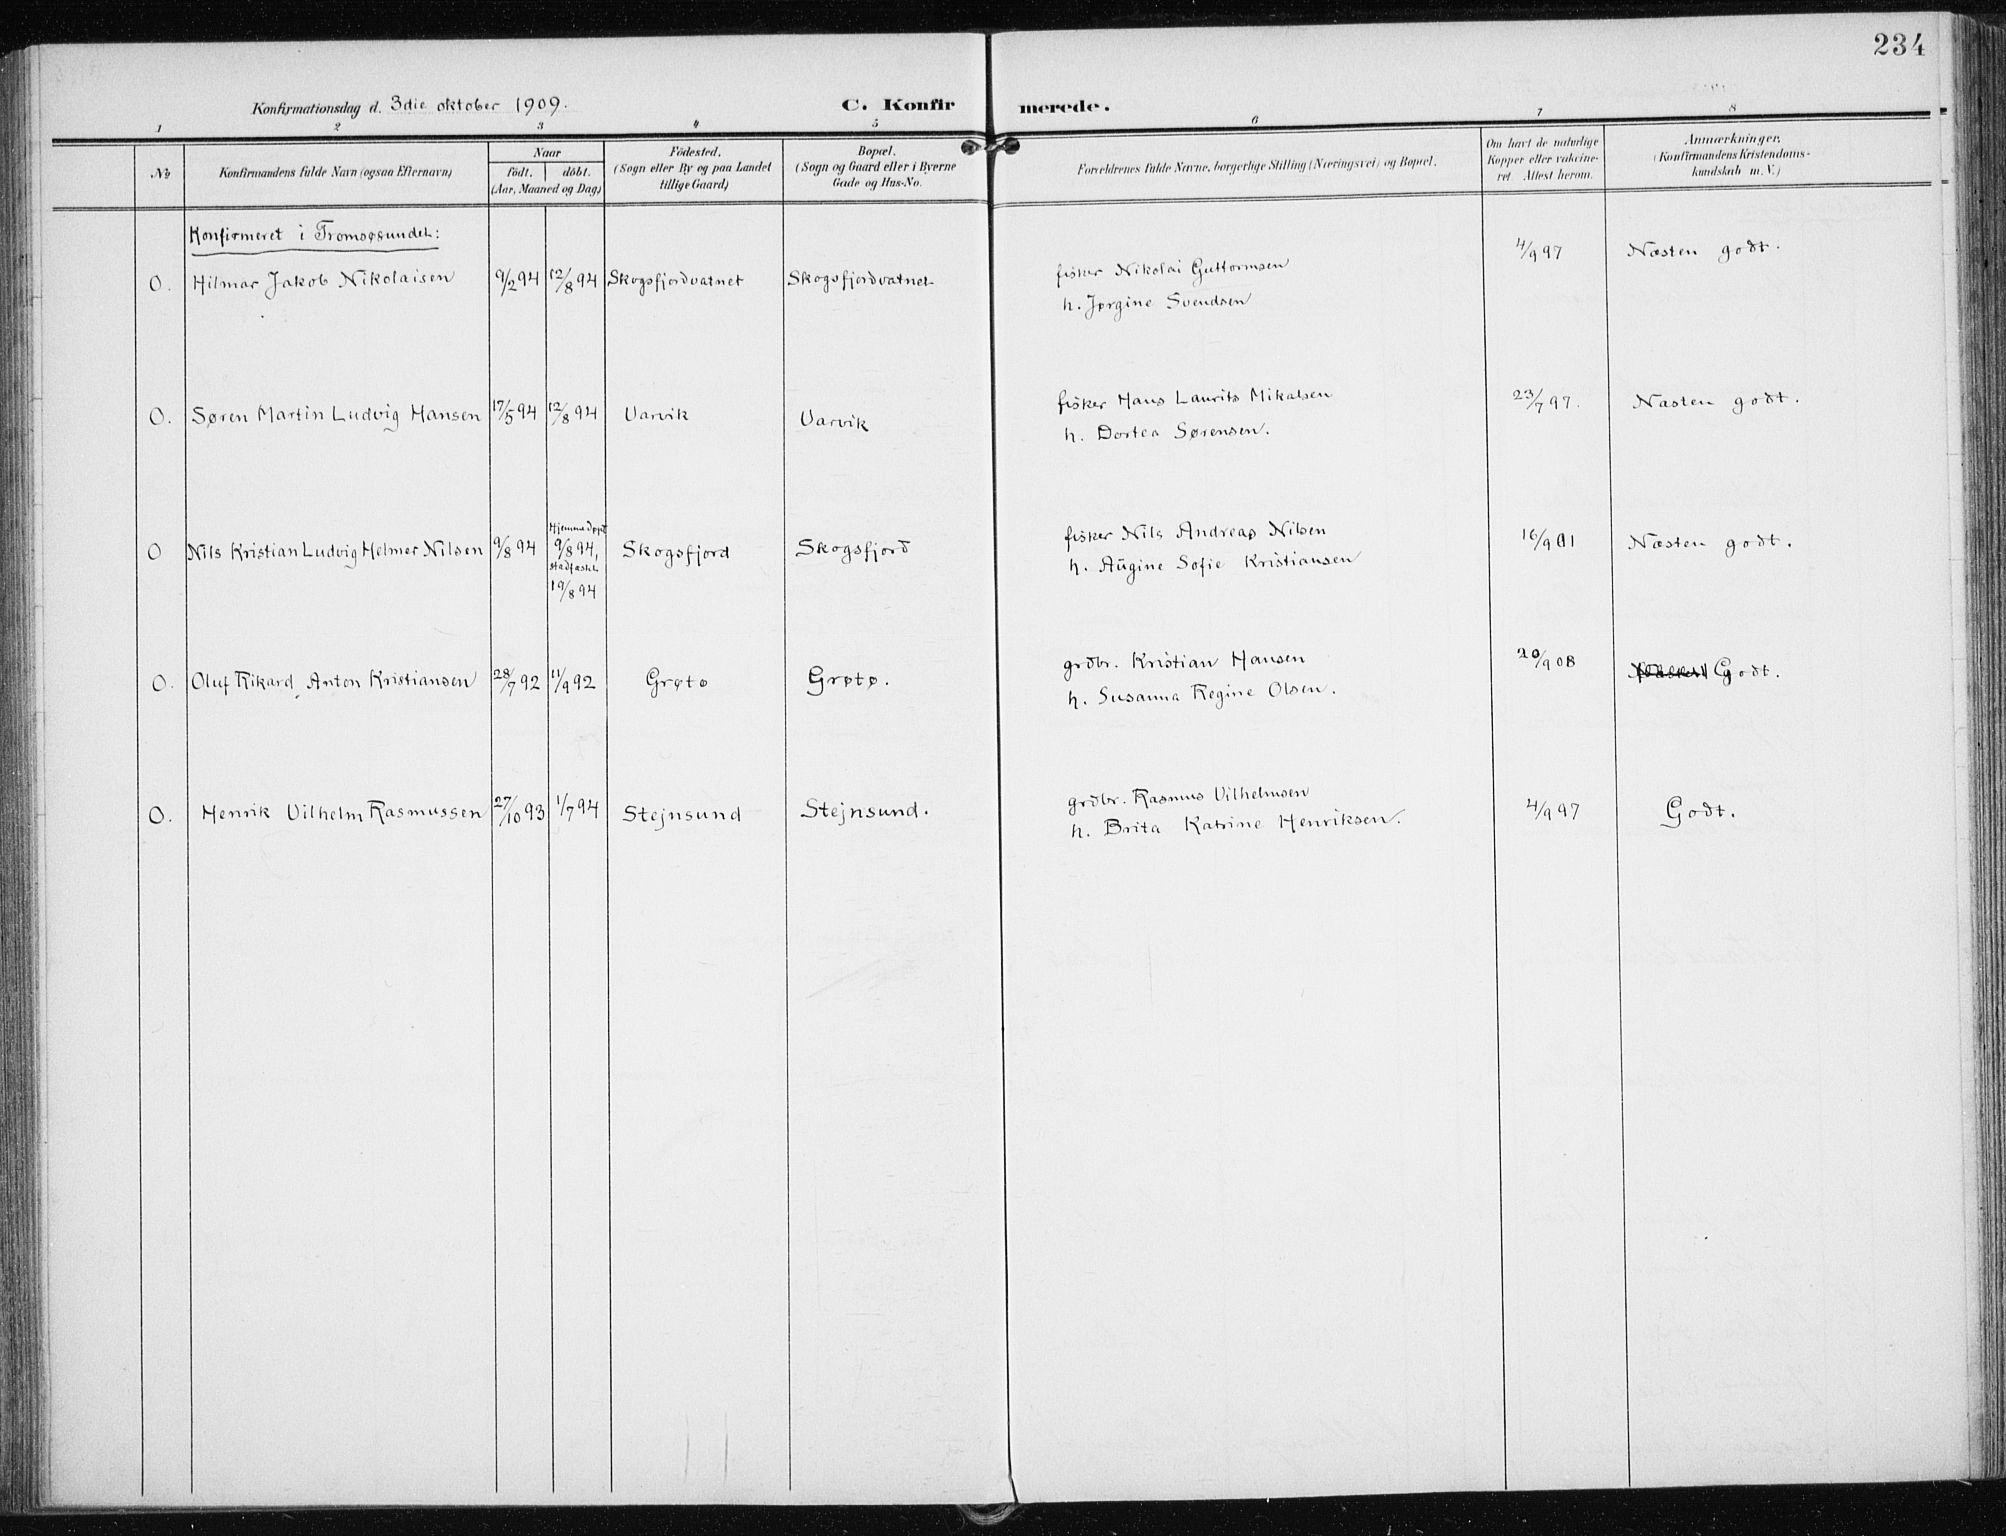 234
Konfirmationsdag d. 3die oktober 1909. C. Konfir merede.
1 2 3 4 5 6 7 8
No Konfirmandens fulde Navn (ogsaa Efternavn) Naar födt. döbt. (Aar, Maaned og Dag) Födested. (Sogn eller By og paa Landet tillige Gaard) Bopæl. (Sogn og Gaard eller i Byerne Gade og Hus-No. Forældrenes fulde Navne, borgerlige Stilling (Næringsvei) og Bopæl. Om havt de naturlige Kopper eller vakcineret Attest herom. Anmærkninger. (Konfirmandens Kristendomskundskab m. V.)
Konfirmeret i Tromsøsundet:
O. Hilmar Jakob Nikolaisen 9/2 94 12/8 94 Skogsfjordvatnet Skogsfjordvatnet fisker Nikolai Guttormsen 4/9 97 Næsten godt.
h. Jørgine Svendsen
O. Søren Martin Ludvig Hansen 17/5 94 12/8 94 Varvik Varvik fisker Hans Laurits Mikalsen 23/7 97. Næsten godt.
h. Dortea Sørensen.
O Nils Kristian Ludvig Helmer Nilsen 9/8 94 Hjemmedøpt 9/8 94, stadfæstet 19/8 94 Skogsfjord Skogsfjord fisker Nils Andreas Nilsen 16/9 01 Næsten godt.
h. Aŭgine Sofie Kristiansen
O. Oluf Rikard Anton Kristiansen 28/7 92 11/9 92 Grøtø Grøtø. grdbr. Kristian Hansen 20/9 08 Godt.
h. Susanna Regine Olsen.
O. Henrik Vilhelm Rasmussen 27/10 93 1/7 94 Stejnsund Stejnsund. grdbr. Rasmus Vilhelmsen 4/9 97 Godt.
h. Brita Katrine Henriksen.